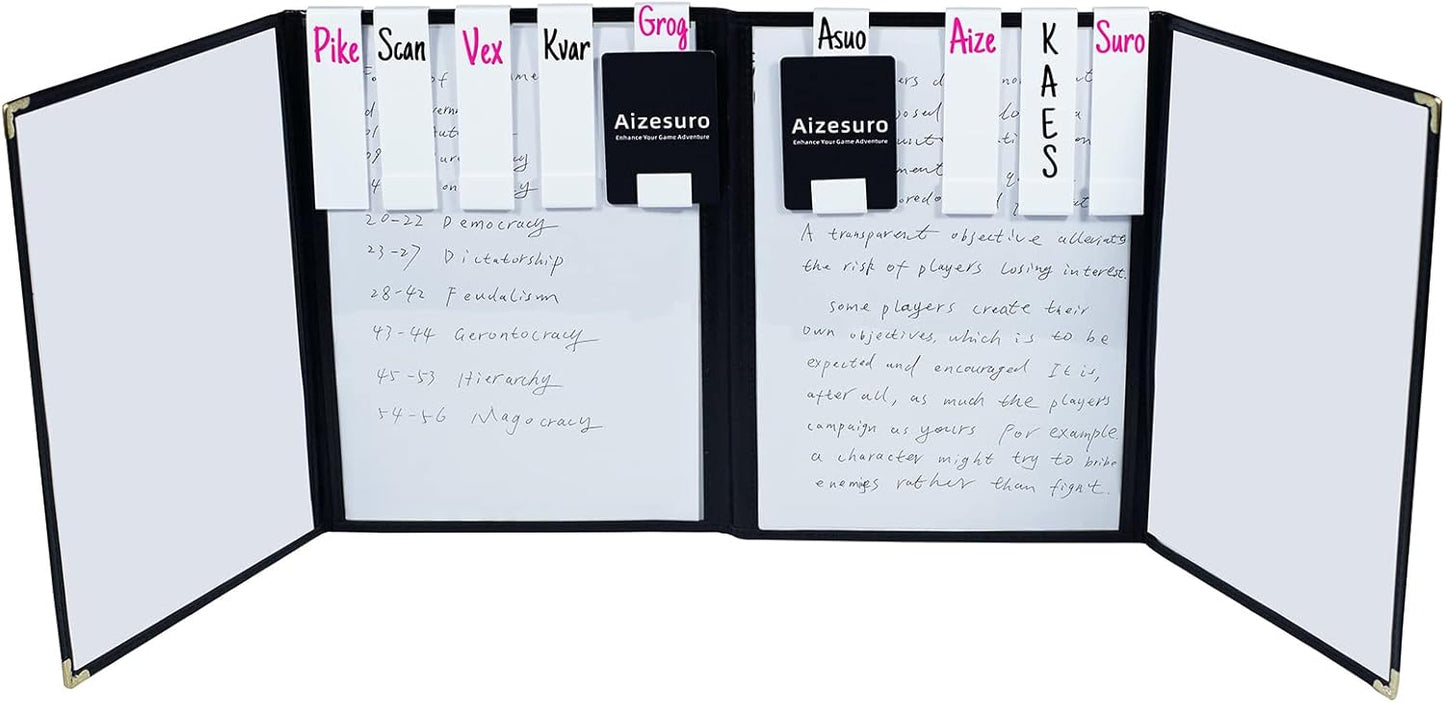 Pike
Scan
Vex
Kvar
Grog
Aizesuro
Enhance Your Game Adventure
20-22 Democracy
23-27 Dictatorship
28-42 Feudalism
43-44 Gerontocracy
45-53 Hierarchy
54-56 Magocracy
Asuo
Aize
KAES
Suro
Aizesuro
Enhance Your Game Adventure
A transparent objective
the risk of players losing interest.
some players create their
own objectives, which is to be
expected and encouraged It is,
after all, as much the players
campaign as yours For example.
a character might try to bribe
enemies rather than fight.